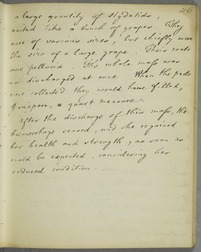 116
a large quantity of Hydatids,
united like a bunch of grapes. They
were of various sizes, but chiefly near
the size of a large grape. Their coats
are pellucid. The whole mass was
not discharged at once. When the parts
were collected they would have filled,
I suppose, a quart measure.
After the discharge of this mass, the
hæmorrhage ceased, and she regained
her health and strength, as soon as
could be expected, considering her
reduced condition.